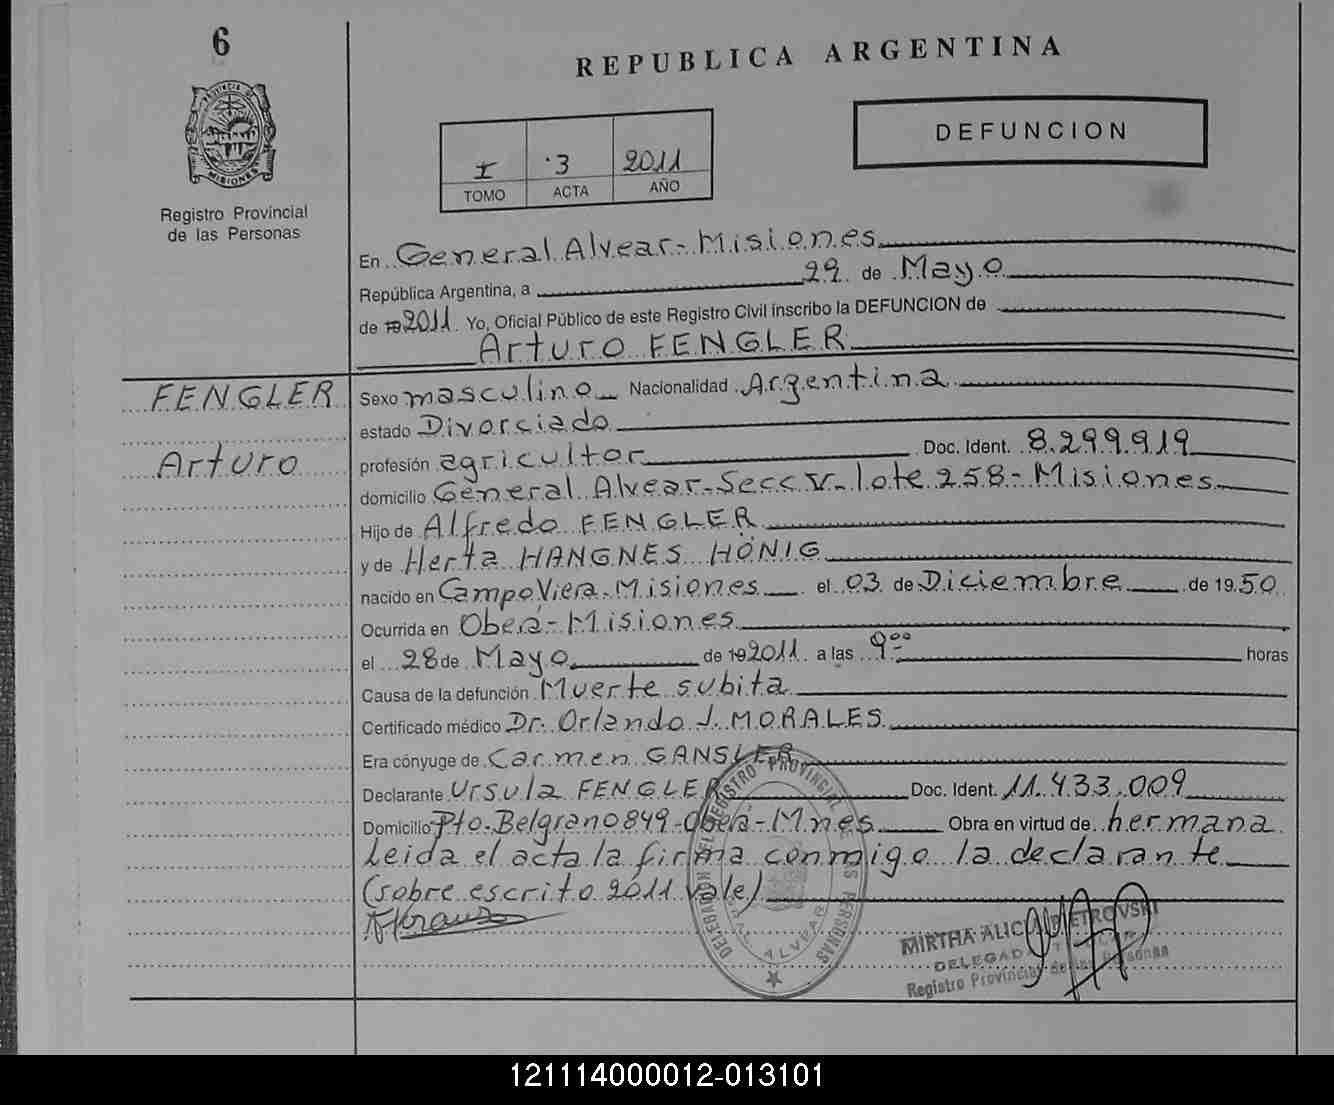 6
REPUBLICA ARGENTINA
PROVINCIA DE
MISIONES
DEFUNCION
I ·3 2011
TOMO ACTA AÑO
Registro Provincial
de las Personas
En General Alvear - Misiones
República Argentina, a 29 de Mayo
de 19 2011. Yo, Oficial Público de este Registro Civil inscribo la DEFUNCION de
Arturo FENGLER
FENGLER
Arturo
Sexo masculino Nacionalidad Argentina
estado Divorciado
profesión agricultor Doc. Ident. 8.299.919
domicilio General Alvear - Secc V - lote 258 - Misiones
Hijo de Alfredo FENGLER
y de Herta HANGNES HÖNIG
nacido en Campo Viera - Misiones el 03 de Diciembre de 1950
Ocurrida en Oberá - Misiones
el 28 de Mayo de 19 2011 a las 9 00 horas
Causa de la defunción Muerte subita
Certificado médico Dr. Orlando J. MORALES
Era cónyuge de Carmen GANSLER
Declarante Ursula FENGLER Doc. Ident. 11.433.009
Domicilio Pto. Belgrano 849 - Oberá - Mnes Obra en virtud de hermana
Leida el acta la firma conmigo la declarante
(sobre escrito 2011 vale)
DELEGACION DEL REGISTRO PROVINCIAL DE LAS PERSONAS
GRAL. ALVEAR
MIRTHA ALICIA PETROVSKI
DELEGADA TITULAR
Registro Provincial de las Personas
121114000012-013101